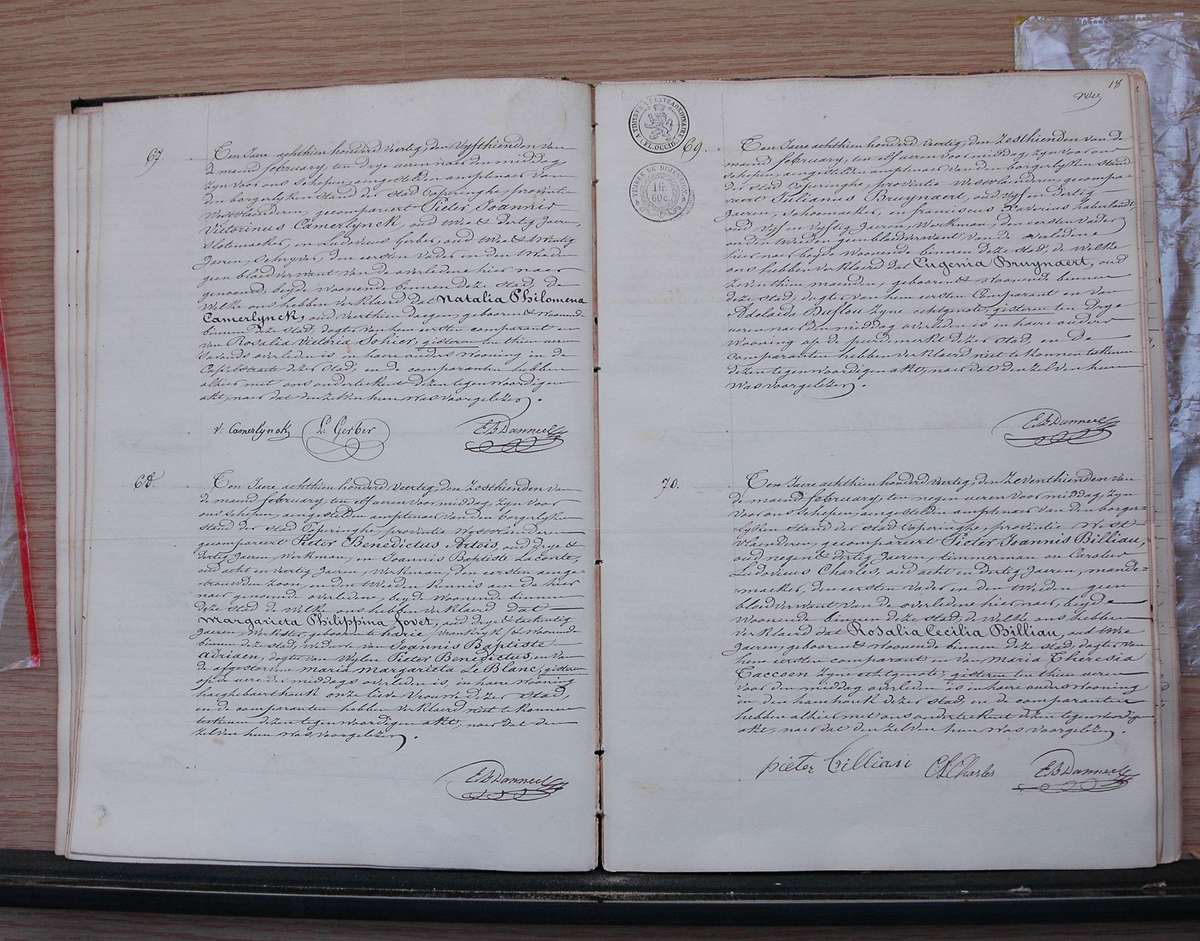 67.
Ten Jaere achthien honderd veertig, den vyfthienden van
de maend february, ten drye uren naer den middag
zyn voor ons schepen, aengestelden amptenaer van
den borgerlyken stand der stad Poperinghe, provintie
Westvlanderen, gecompareert Pieter Joannes
Victorinus Camerlynck, oud twee & dertig Jaeren,
Slotemaeker, en Ludovicus Gerber, oud
Jaeren, Schryver, den eersten vader en den tweeden
geen bloedverwant van de overledene hier naer
genoemd, beyde woonende binnen deze stad, de
Welke ons hebben verklaerd dat Natalia Philomena
Camerlynck, oud veerthien daegen, geboren & woonende
binnen deze stad, dogter van hem eersten comparant en
van Rosalia Victoria Sohier, gisteren ten thien uren
s'avonds overleden is in haere ouders wooning in de
straete dezer stad en de comparanten hebben
alhier met ons onderteekent dezen tegenwoordigen
akt, naer dat den zelven hun was voorgelezen.
v. Camerlynck L. Gerber E. B. Danneel
68.
Ten Jaere achthien honderd veertig, den zesthienden van
de maend february, ten elf uren voormiddag, zyn voor
ons schepen, aengestelden amptenaer van den borgerlyken
stand der stad Poperinghe, provintie Westvlanderen
gecompareert Pieter Benedictus Artois, oud drye &
dertig Jaeren, werkman, en Joannes Baptiste Lecorte,
oud acht en veertig Jaeren, werkman, de eersten aenge-
trouwden zoon, en den tweeden kennis van de hier
naer genoemd overledene, beyde woonende binnen
deze stad, de welke ons hebben verklaerd dat
Margarieta Philippina Jovet, oud drye & tachentig
Jaeren, geboren te Vrankryk, & woonende
binnen deze stad, weduwe van Joannes Baptiste
Adriaen, dogter van wylen Pieter Benedictus, en van
de afgestorven Marie Margarieta Le Blanc, gisteren
ten een ure des middags overleden is, in haere wooning
onze lieve Vrouwe dezer stad
en de comparanten hebben verklaerd niet te konnen
teekenen dezen tegenwoordigen akt, naer dat den
zelven hun was voorgelezen.
E. B. Danneel
18
TIMBRE EXTRAORDINAIRE
FL. OCCID.
TIMBRE DE DIMENSION
1 fr. 60 c.
69.
Ten Jaere achthien honderd veertig, den zesthienden van de
maend february, ten elf uren voor middag, zyn voor ons
schepen, aengestelden amptenaer van den borgerlyken stand
der stad Poperinghe, provintie Westvlanderen, gecompa-
reert Julianus Bruynaert, oud vyf en dertig
Jaeren, schoenmaeker, en Franciscus Xaverius
oud vyf en vyftig Jaeren, Werkman, den eersten vader
en den tweeden geen bloedverwant van de overledene
hier naer, beyde woonende binnen deze stad, de welke
ons hebben verklaerd dat Eugenia Bruynaert, oud
zeventhien maenden, geboren & woonende binnen
deze stad, dogter van hem eersten comparant en van
Adelaide Duflou zyne echtgenote, gisteren ten drye
uren naer den middag overleden is in haere ouders
wooning op de peerdemerkt dezer stad en de
comparanten hebben verklaerd niet te konnen teekenen
dezen tegenwoordigen akt, naer dat den zelven hun
was voorgelezen.
E. B. Danneel
70.
Ten Jaere achthien honderd veertig, den zeventhienden van
de maend february, ten negen uren voor middag, zyn
voor ons schepen, aengestelden amptenaer van den borger-
lyken stand der stad Poperinghe, provintie West
Vlanderen, gecompareert Pieter Joannes Billiau,
oud negen & dertig Jaeren, timmerman en Carolus
Ludovicus Charles, oud acht en dertig Jaeren, mande-
maeker, den eersten vader en den tweeden geen
bloedverwant van de overledene hier naer, beyde
woonende binnen deze stad, de welke ons hebben
verklaerd dat Rosalia Cecilia Billiau, oud twee
Jaeren, geboren & woonende binnen deze stad, dogter van
hem eersten comparant en van Maria Theresia
Caccoen zyne echtgenote, gisteren ten thien uren
voor den middag overleden is in haere ouders wooning
in den dezer stad, en de comparanten
hebben alhier met ons onderteekent dezen tegenwoordigen
akt, naer dat den zelven hun was voorgelezen.
pieter billiau CL Charles E. B. Danneel